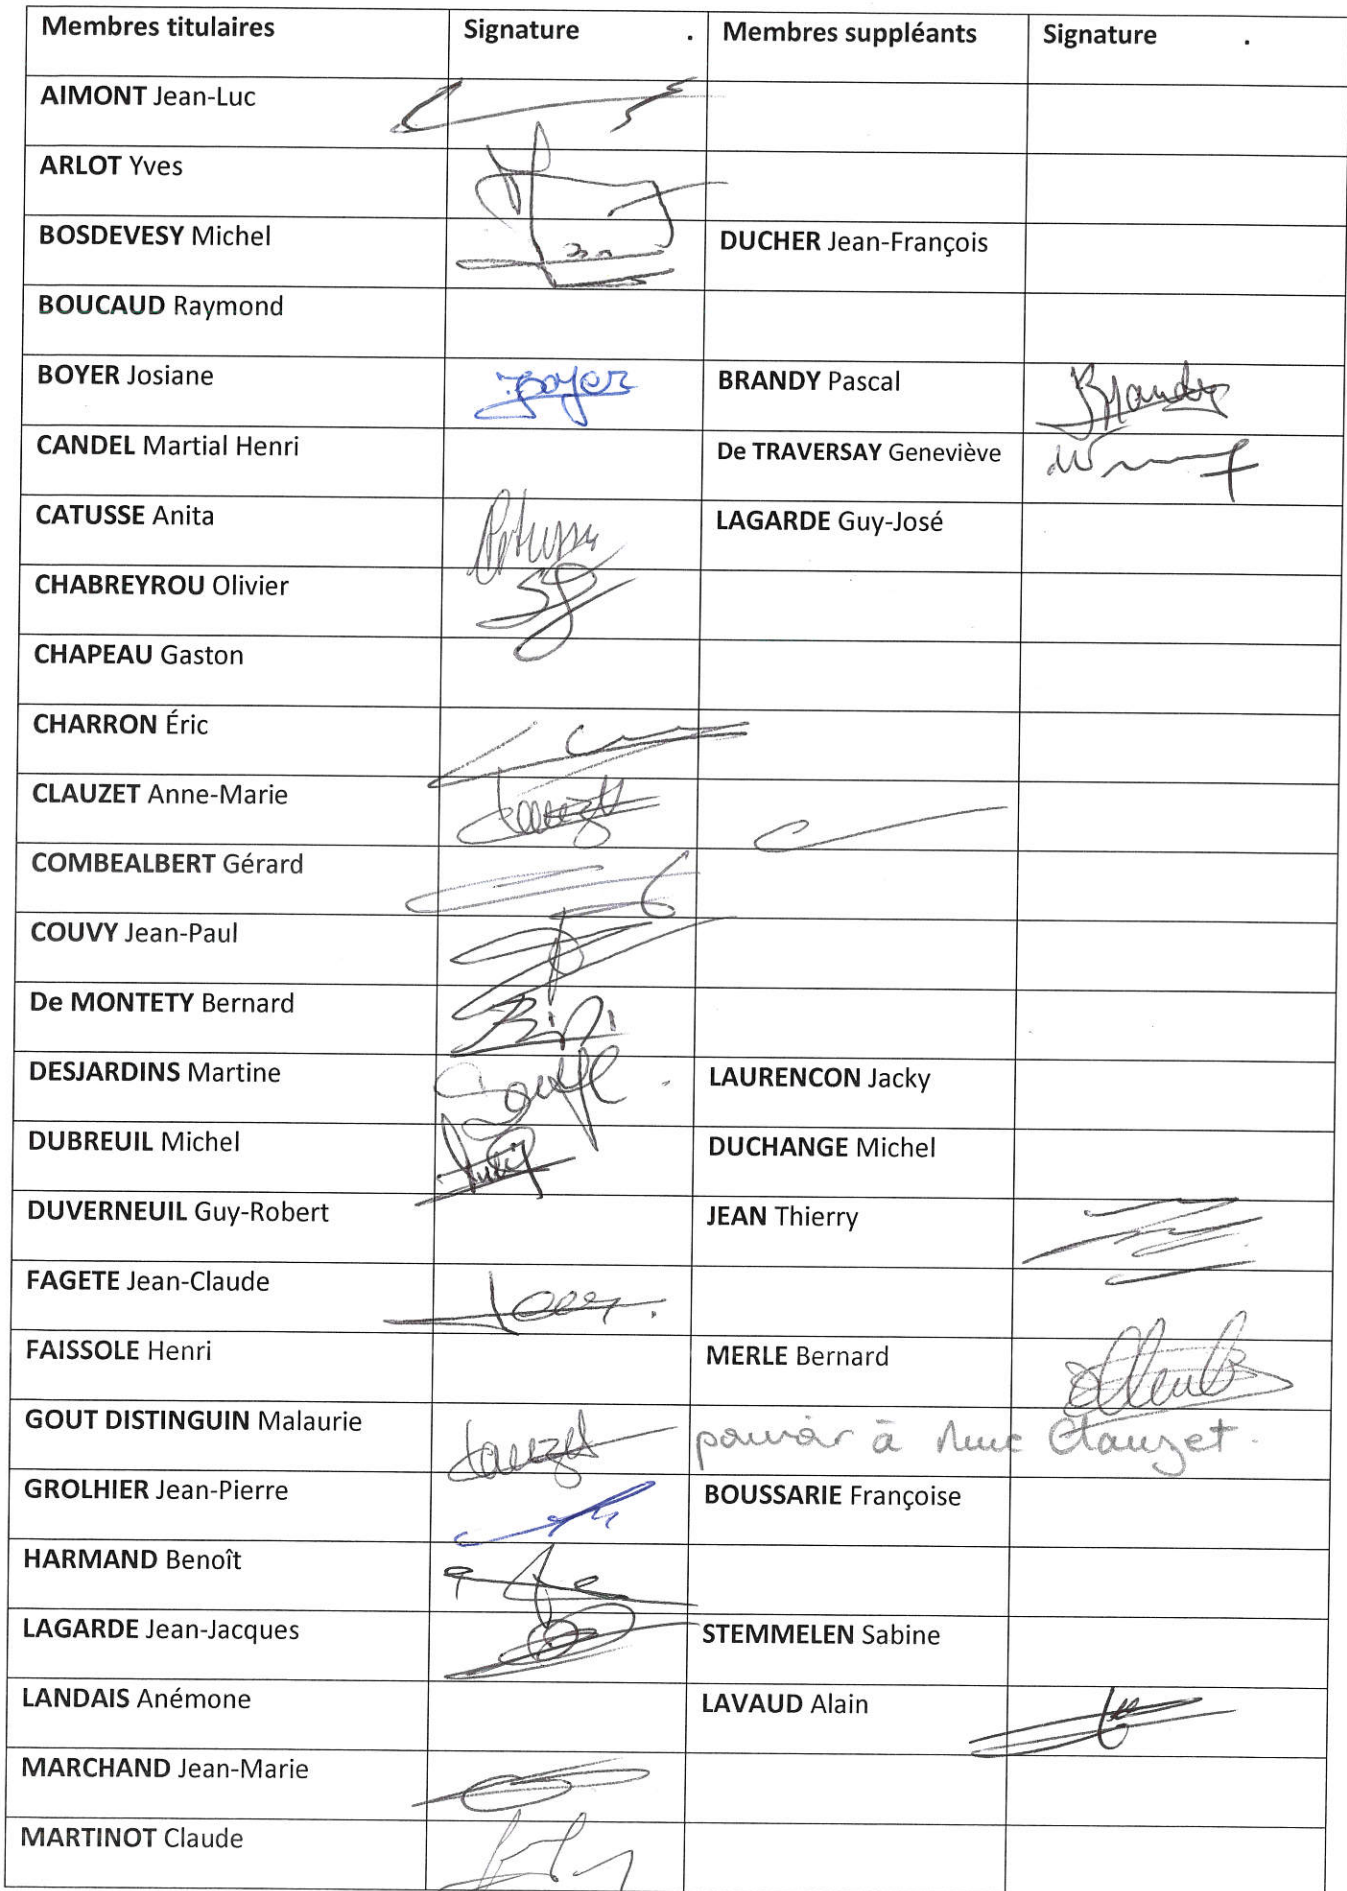 Membres titulaires Signature . Membres suppléants Signature .
AIMONT Jean-Luc
ARLOT Yves
BOSDEVESY Michel DUCHER Jean-François
BOUCAUD Raymond
BOYER Josiane Boyer BRANDY Pascal Brandy
CANDEL Martial Henri De TRAVERSAY Geneviève
CATUSSE Anita Catusse LAGARDE Guy-José
CHABREYROU Olivier
CHAPEAU Gaston
CHARRON Éric
CLAUZET Anne-Marie Clauzet
COMBEALBERT Gérard
COUVY Jean-Paul
De MONTETY Bernard
DESJARDINS Martine LAURENCON Jacky
DUBREUIL Michel DUCHANGE Michel
DUVERNEUIL Guy-Robert JEAN Thierry
FAGETE Jean-Claude
FAISSOLE Henri MERLE Bernard
GOUT DISTINGUIN Malaurie Clauzet pouvoir à Mme Clauzet.
GROLHIER Jean-Pierre BOUSSARIE Françoise
HARMAND Benoît
LAGARDE Jean-Jacques STEMMELEN Sabine
LANDAIS Anémone LAVAUD Alain
MARCHAND Jean-Marie
MARTINOT Claude